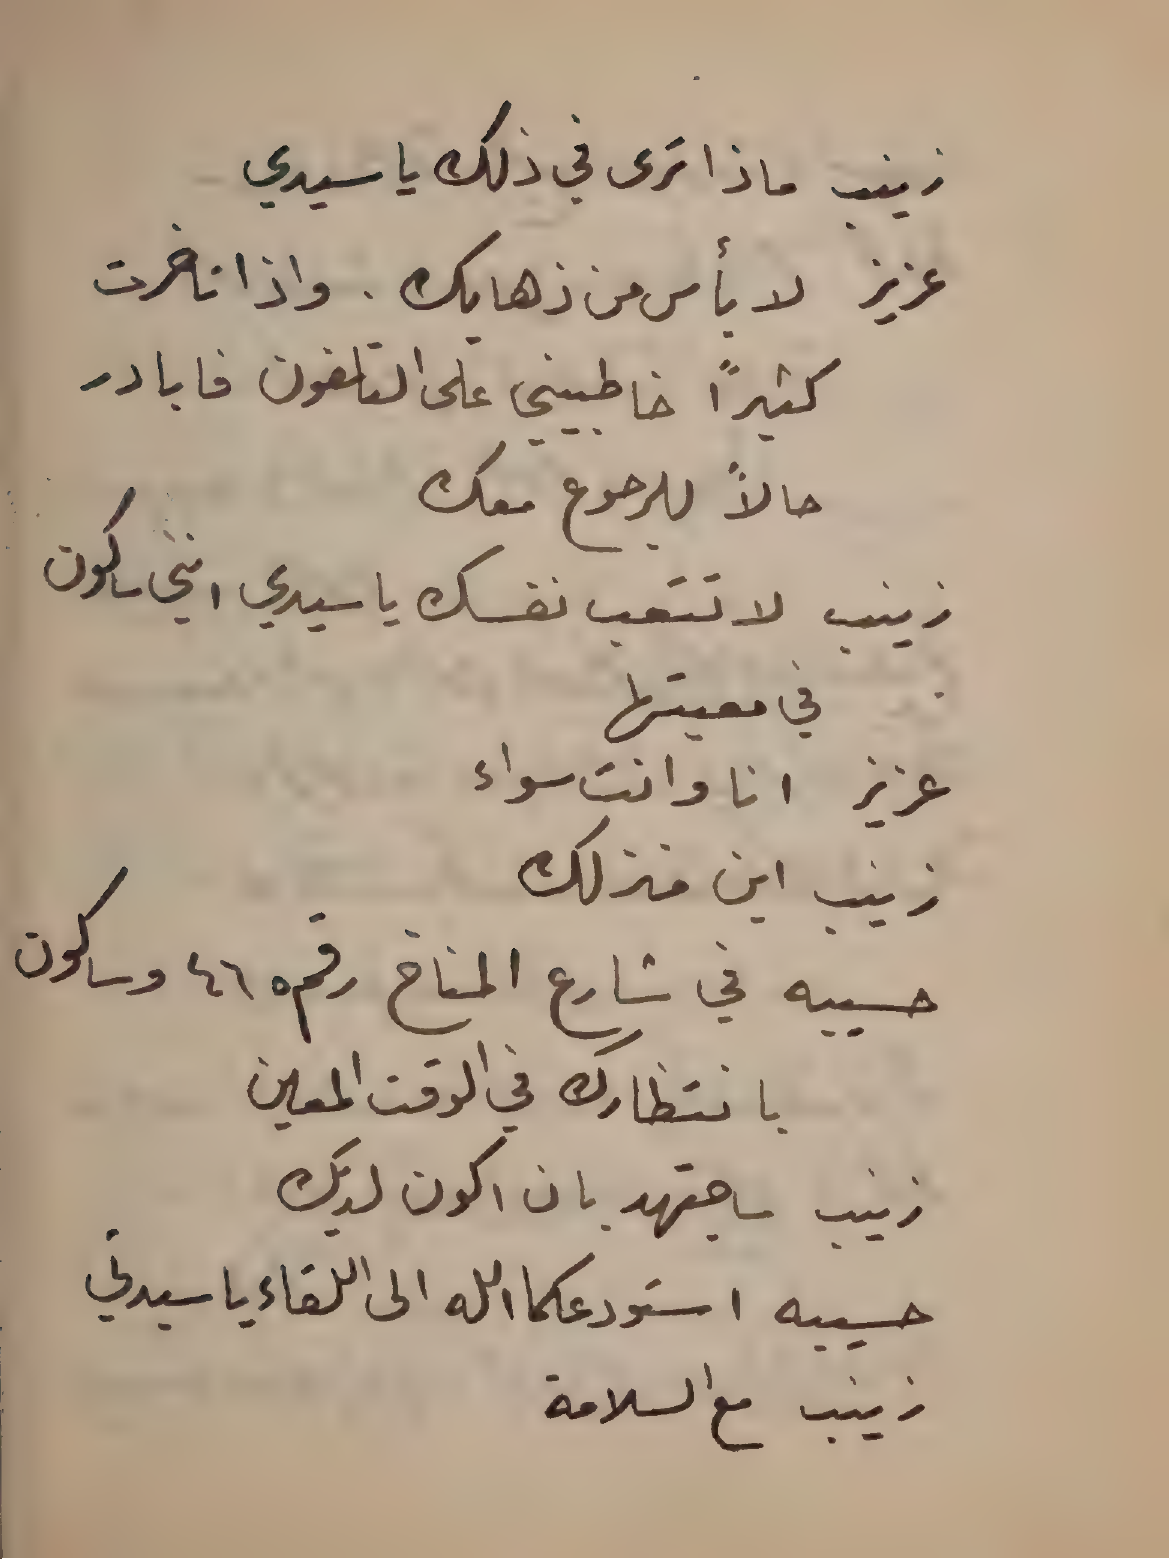 زينب ماذا ترى في ذلك يا سيدي
عزيز لا بأس من ذهابك . واذا تاخرت
كثيراً خاطبيني على التلفون فابادر
حالاً للرجوع معك
زينب لا تتعب نفسك يا سيدي انني ساكون
في معيتها
عزيز انا وانت سواء
زينب اين منزلك
حسيبه في شارع المناخ رقم ٤٦٥ وساكون
بانتظارك في الوقت المعين
زينب ساجتهد بان اكون لديك
حسيبه استودعكما الله الى اللقاء يا سيدتي
زينب مع السلامة